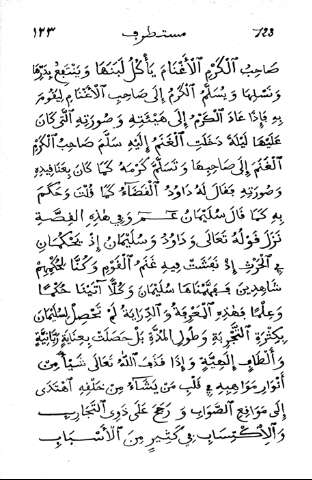 123 مستطرف ١٢٣
صَاحِبُ الْكَرْمِ الْأَغْنَامَ يَأْكُلُ لَبَنَهَا وَيَنْتَفِعُ بِدَرِّهَا
وَنَسْلِهَا وَيُسَلَّمُ الْكَرْمُ إِلَى صَاحِبِ الْأَغْنَامِ لِيَقُومَ
بِهِ فَإِذَا عَادَ الْكَرْمُ إِلَى هَيْئَتِهِ وَصُورَتِهِ الَّتِي كَانَ
عَلَيْهَا لَيْلَةَ دَخَلَتِ الْغَنَمُ إِلَيْهِ سَلَّمَ صَاحِبُ الْكَرْمِ
الْغَنَمَ إِلَى صَاحِبِهَا وَتَسَلَّمَ كَرْمَهُ كَمَا كَانَ بِعَنَاقِيدِهِ
وَصُورَتِهِ فَقَالَ لَهُ دَاوُدُ الْقَضَاءُ كَمَا قُلْتَ وَحَكَمَ
بِهِ كَمَا قَالَ سُلَيْمَانُ وَفِي هٰذِهِ الْقِصَّةِ
نَزَلَ قَوْلُهُ تَعَالَى وَدَاوُدَ وَسُلَيْمَانَ إِذْ يَحْكُمَانِ
فِي الْحَرْثِ إِذْ نَفَشَتْ فِيهِ غَنَمُ الْقَوْمِ وَكُنَّا لِحُكْمِهِمْ
شَاهِدِينَ فَفَهَّمْنَاهَا سُلَيْمَانَ وَكُلًّا آتَيْنَا حُكْمًا
وَعِلْمًا فَهٰذِهِ الْمَعْرِفَةُ وَالدِّرَايَةُ لَمْ تَحْصُلْ لِسُلَيْمَانَ
بِكَثْرَةِ التَّجْرِبَةِ وَطُولِ الْمُدَّةِ بَلْ حَصَلَتْ بِعِنَايَةٍ رَبَّانِيَّةٍ
وَأَلْطَافٍ إِلٰهِيَّةٍ وَإِذَا قَذَفَ اللهُ تَعَالَى شَيْأً مِنْ
أَنْوَارِ مَوَاهِبِهِ فِي قَلْبِ مَنْ يَشَاءُ مِنْ خَلْقِهِ اهْتَدَى
إِلَى مَوَاقِعِ الصَّوَابِ وَرَجَحَ عَلَى ذَوِي التَّجَارِبِ
وَالْاِكْتِسَابِ فِي كَثِيرٍ مِنَ الْأَسْبَابِ